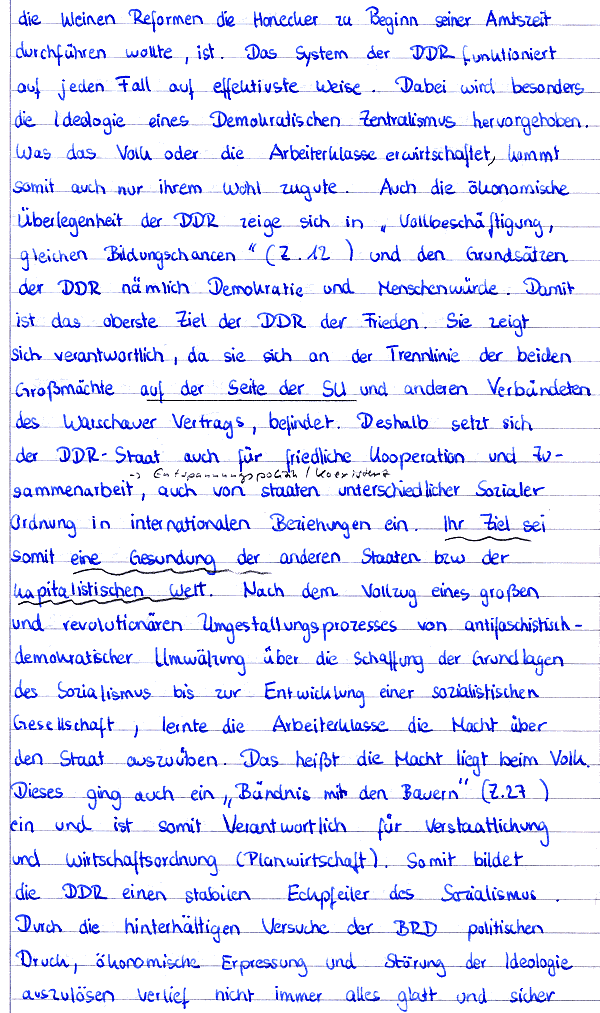 die kleinen Reformen die Honecker zu Beginn seiner Amtszeit
durchführen wollte, ist. Das System der DDR funktioniert
auf jeden Fall auf effektivste Weise. Dabei wird besonders
die Ideologie eines Demokratischen Zentralismus hervorgehoben.
Was das Volk oder die Arbeiterklasse erwirtschaftet, kommt
somit auch nur ihrem Wohl zugute. Auch die ökonomische
Überlegenheit der DDR zeige sich in „Vollbeschäftigung,
gleichen Bildungschancen“ (Z.12 ) und den Grundsätzen
der DDR nämlich Demokratie und Menschenwürde. Damit
ist das oberste Ziel der DDR der Frieden. Sie zeigt
sich verantwortlich, da sie sich an der Trennlinie der beiden
Großmächte auf der Seite der SU und anderen Verbündeten
des Warschauer Vertrags, befindet. Deshalb setzt sich
der DDR-Staat auch für friedliche Kooperation und Zu-
-> Entspannungspolitik / Koexistenz
sammenarbeit, auch von staaten unterschiedlicher Sozialer
Ordnung in internationalen Beziehungen ein. Ihr Ziel sei
somit eine Gesundung der anderen Staaten bzw der
kapitalistischen Welt. Nach dem Vollzug eines großen
und revolutionären Umgestaltungsprozesses von antifaschistisch-
demokratischer Umwälzung über die Schaffung der Grundlagen
des Sozialismus bis zur Entwicklung einer sozialistischen
Gesellschaft, lernte die Arbeiterklasse die Macht über
den Staat auszuüben. Das heißt die Macht liegt beim Volk.
Dieses ging auch ein „Bündnis mit den Bauern“ (Z.27 )
ein und ist somit Verantwortlich für Verstaatlichung
und Wirtschaftsordnung (Planwirtschaft). Somit bildet
die DDR einen stabilen Eckpfeiler des Sozialismus.
Durch die hinterhältigen Versuche der BRD politischen
Druck, ökonomische Erpressung und Störung der Ideologie
auszulösen verlief nicht immer alles glatt und sicher